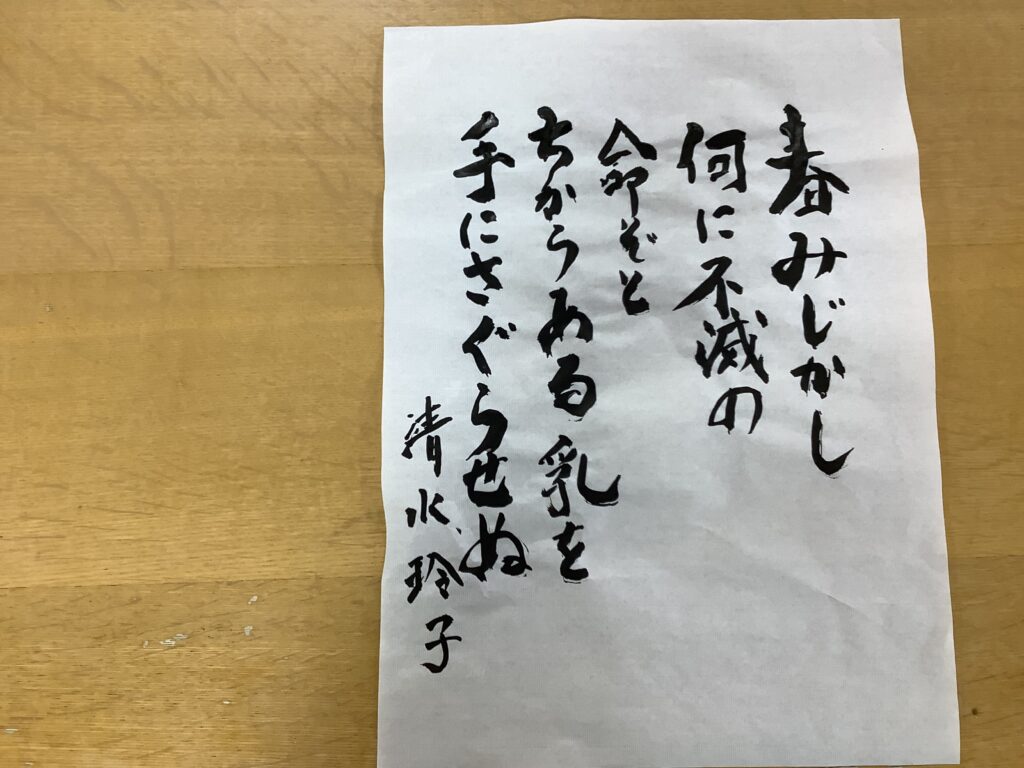 春みじかし
何に不滅の
命ぞと
ちからある乳を
手にさぐらせぬ
清水玲子